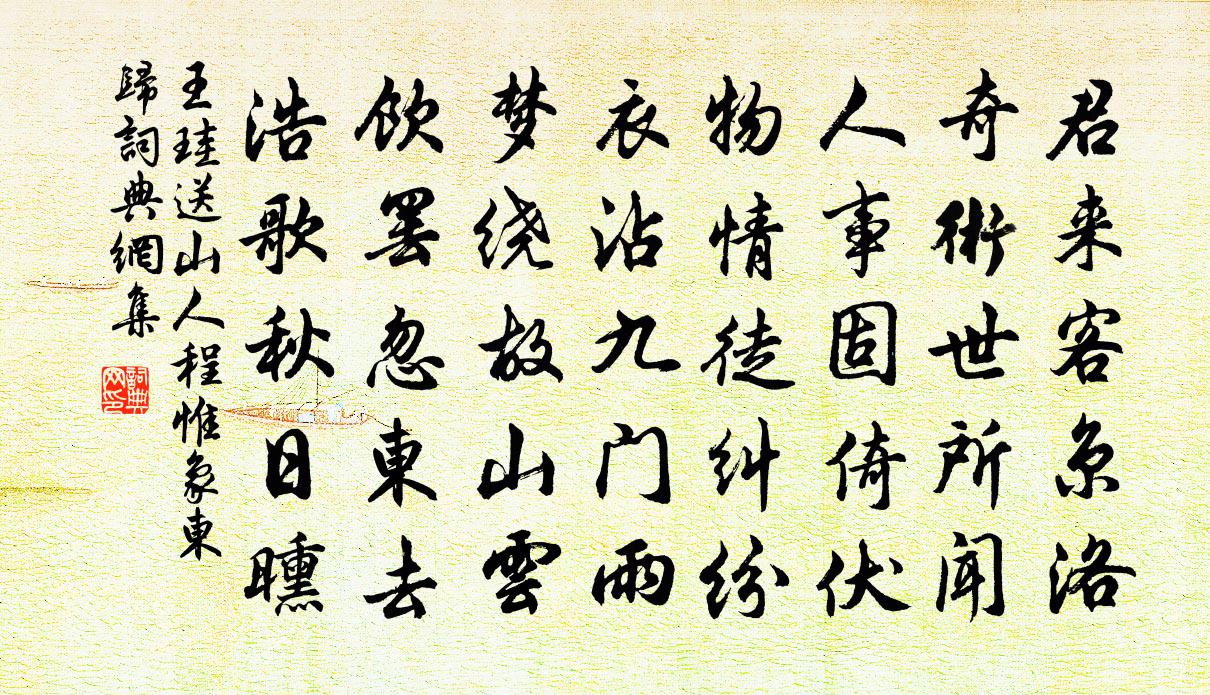 君来客京洛
奇術世所闻
人事固倚伏
物情徒纠纷
衣沾九门雨
梦绕故山雲
飲罢忽東去
浩歌秋日曛
王珪送山人程惟象東
歸詞典網集
詞典
网印